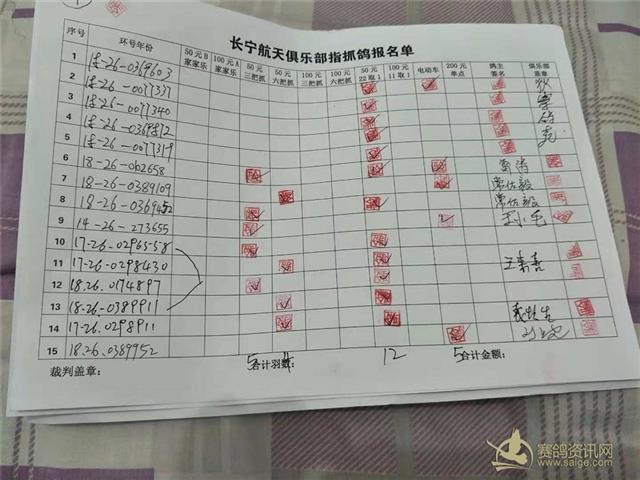 长宁航天俱乐部指抓鸽报名单
序号 环号年份 50元B家家乐 100元A家家乐 50元三把抓 50元六把抓 100元三把抓 100元六把抓 50元22取1 100元11取1 电动车 200元单点 鸽主签名 俱乐部盖章
1 18-26-0369603
2 18-26-0077337
3 18-26-0077340
4 18-26-0369872
5 18-26-0077319
6 18-26-0162658
7 18-26-0389109
8 18-26-0369452
9 14-26-273655
10 17-26-0296558
11 17-26-0298430
12 18.26.0174897
13 18.26-0389911
14 17-26.0298911
15 18.26.0389952
裁判盖章： 5 各计羽数： 12 5 合计金额：
赛鸽资讯网
www.saige.com